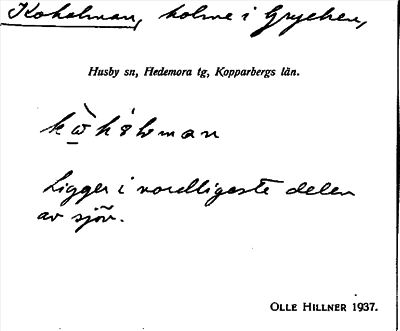 Koholman, holme i Grycken,
Husby sn, Hedemora tg, Kopparbergs län.
Ligger i nordligaste delen
av sjön.
OLLE HILLNER 1937.